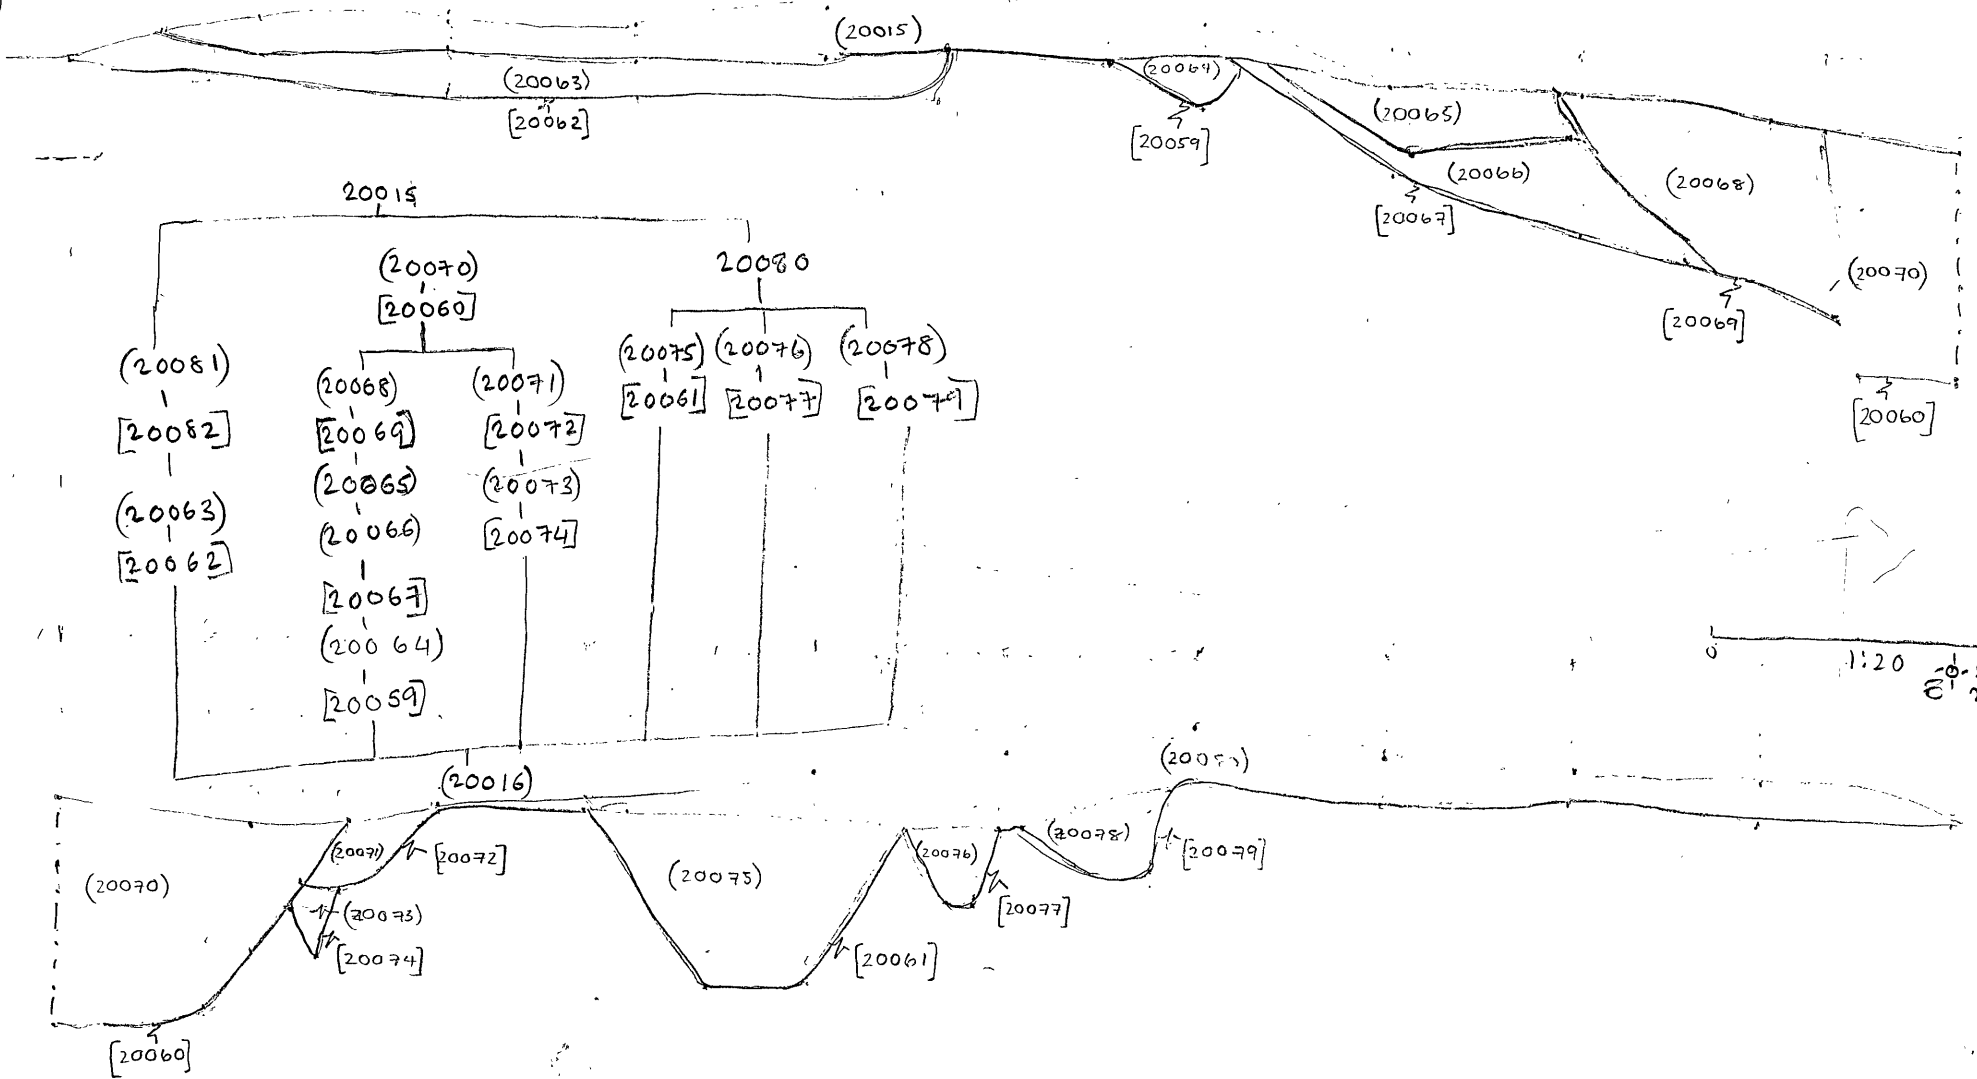 (20015)
(20063)
[20062]
(20064)
[20059]
(20065)
(20066)
[20067]
(20068)
[20069]
(20070)
[20060]
20015
(20070)
[20060]
20080
(20081)
[20082]
(20063)
[20062]
(20068)
[20069]
(20065)
(20066)
[20067]
(20064)
[20059]
(20071)
[20072]
(20073)
[20074]
(20075) (20076) (20078)
[20061] [20077] [20079]
(20016)
0
1:20
(20070)
[20060]
(20071)
[20072]
(20073)
[20074]
(20075)
[20061]
(20076)
[20077]
(20078)
[20079]